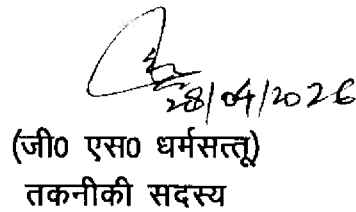 28/04/2026
(जी० एस० धर्मसत्तू)
तकनीकी सदस्य